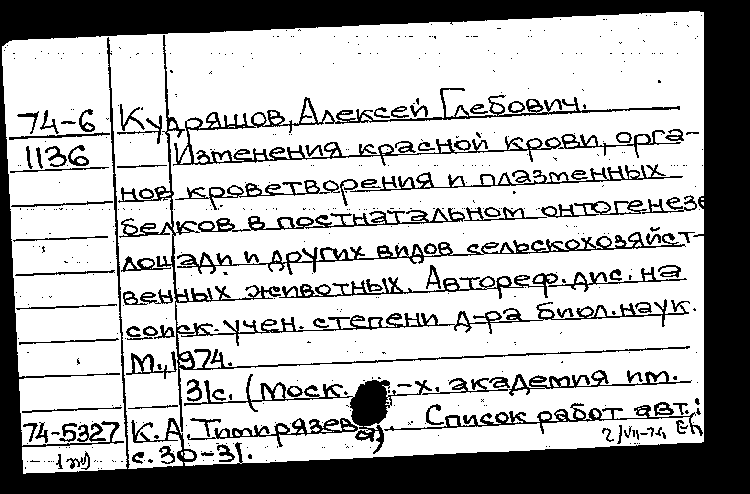 74-6 Кудряшов, Алексей Глебович.
1136 Изменения красной крови, орга-
нов кроветворения и плазменных
белков в постнатальном онтогенезе
лошади и других видов сельскохозяйст-
венных животных. Автореф. дис. на
соиск. учен. степени д-ра биол. наук.
М., 1974.
31с. (Моск. -х. академия им.
74-5327 К.А. Тимирязева). Список работ авт.:
с. 30-31.